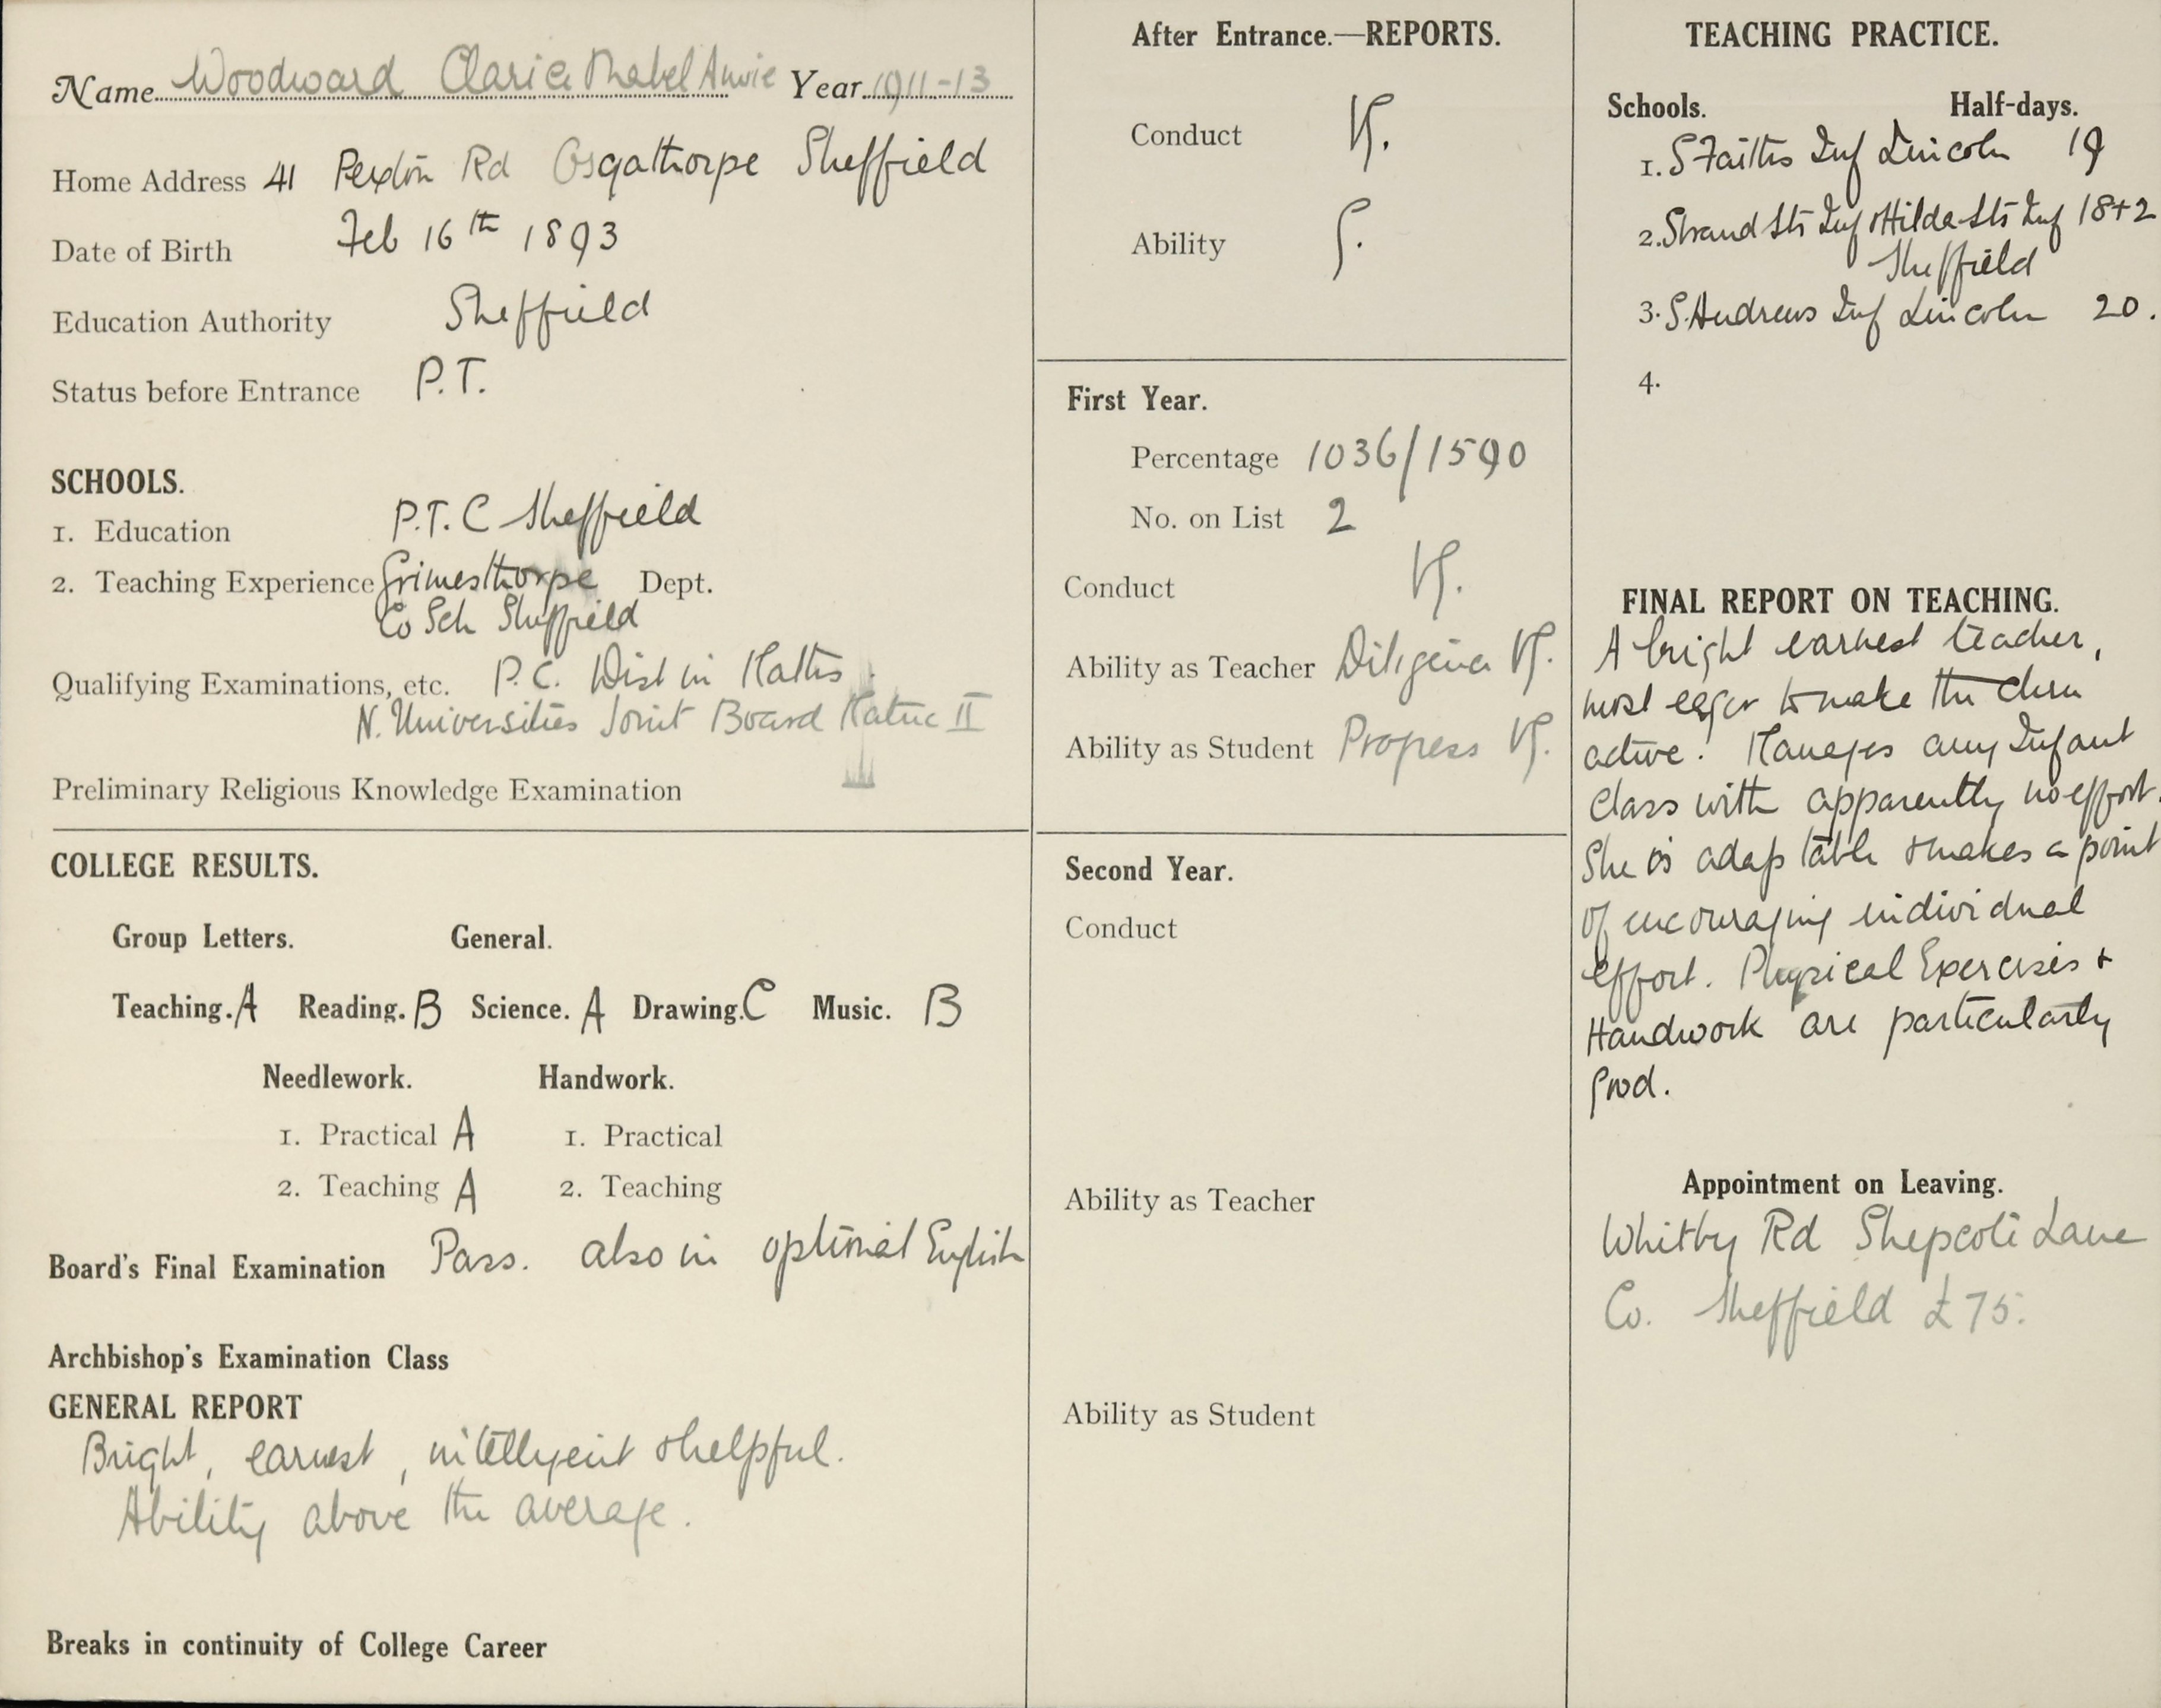 Name Woodward Clarice Mabel Annie Year 1911-13
Home Address 41 Pexton Rd Osgathorpe Sheffield
Date of Birth Feb 16th 1893
Education Authority Sheffield
Status before Entrance P.T.
SCHOOLS.
1. Education P.T.C Sheffield
2. Teaching Experience Grimesthorpe Dept.
Co Sch Sheffield
Qualifying Examinations, etc. P.C. Dist in Maths.
N. Universities Joint Board Matric II
Preliminary Religious Knowledge Examination
COLLEGE RESULTS.
Group Letters. General.
Teaching. A Reading. B Science. A Drawing. C Music. B
Needlework. Handwork.
1. Practical A 1. Practical
2. Teaching A 2. Teaching
Board's Final Examination Pass. also in optional English
Archbishop's Examination Class
GENERAL REPORT
Bright, earnest, intelligent & helpful.
Ability above the average.
Breaks in continuity of College Career
After Entrance.—REPORTS.
Conduct VG.
Ability G.
First Year.
Percentage 1036/1590
No. on List 2
Conduct VG.
Ability as Teacher Diligence VG.
Ability as Student Progress VG.
Second Year.
Conduct
Ability as Teacher
Ability as Student
TEACHING PRACTICE.
Schools. Half-days.
1. S Faiths Inf Lincoln 19
2. Strand Sts Inf & Hilda Sts Inf 18+2
Sheffield
3. S. Andrews Inf Lincoln 20.
4.
FINAL REPORT ON TEACHING.
A bright earnest teacher,
most eager to make the chn
active. Manages any Infant
class with apparently no effort.
She is adaptable & makes a point
of encouraging individual
effort. Physical Exercises +
Handwork are particularly
good.
Appointment on Leaving.
Whitby Rd Shepcote Lane
Co. Sheffield £75.